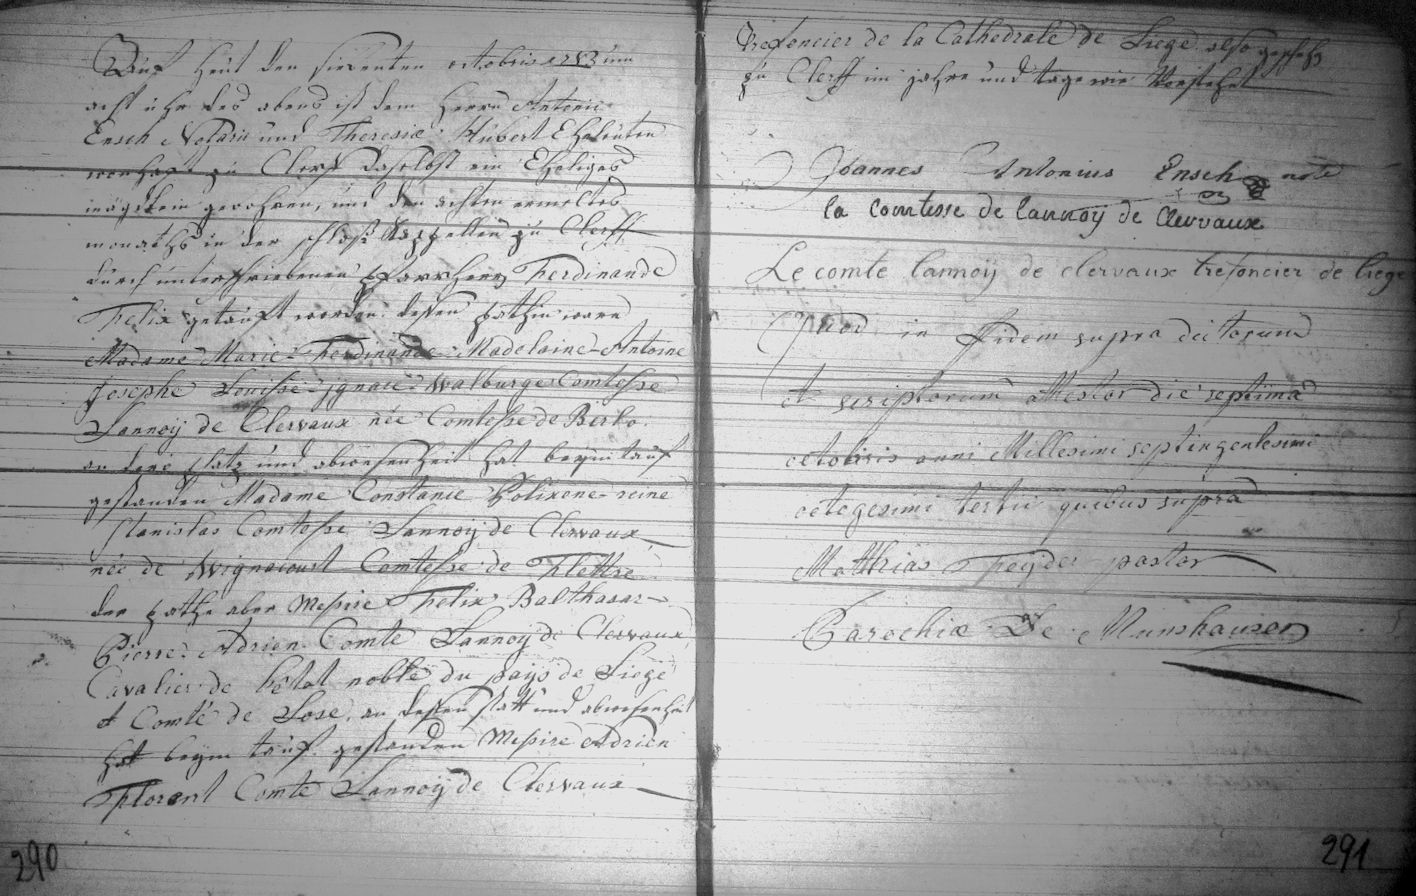 Auf heut den siebenten octobris 1783 um
acht uhr des abends ist dem Herrn Antonio
Ensch Notario und Theresiæ Hubert Eheleuten
wonhaft zu Clerf daselbst ein Eheliges
mägdlein gebohren, und den achten ermeltes
monaths in der schloß Kappellen zu Clerff
durch unterschriebenen pfarrherrn Ferdinande
Felix getauft worden. dessen pathin ware
Madame Marie-Ferdinande-Madelaine-Antoine
Josephe Louisse ignace Walburge Comtesse
Lannoÿ de Clervaux née Comtesse de Berlo.
an dero platz und abwesenheit hat beÿm tauf
gestanden Madame Constance Polixene-reine
Stanislas Comtesse Lannoÿ de Clervaux
née de Wignacourt Comtesse de Flettre
der pathe aber Messire Felix Balthasar
Pierre Adrien Comte Lannoÿ de Clervaux
Cavalier de l'état noble du païs de Liege
et Comté de Lose. an dessen statt und abwesenheit
hat beÿm tauf gestanden Messire Adrien
Florent Comte Lannoÿ de Clervaux
290
Trefoncier de la Cathedrale de Liege. also geschehen
zu Clerff im jahre und tage wie Vorstehet
Joannes Antonius Ensch nore
la comtesse de lannoy de Clervaux
Le comte lannoÿ de clervaux trefoncier de liege
Quod in fidem supra dictorum
et scriptorum attestor die septima
octobris anni Millesimi septingentesimi
octogesimi tertii quibus supra
Matthias Feÿder pastor
Parochiæ De Munshausen
291